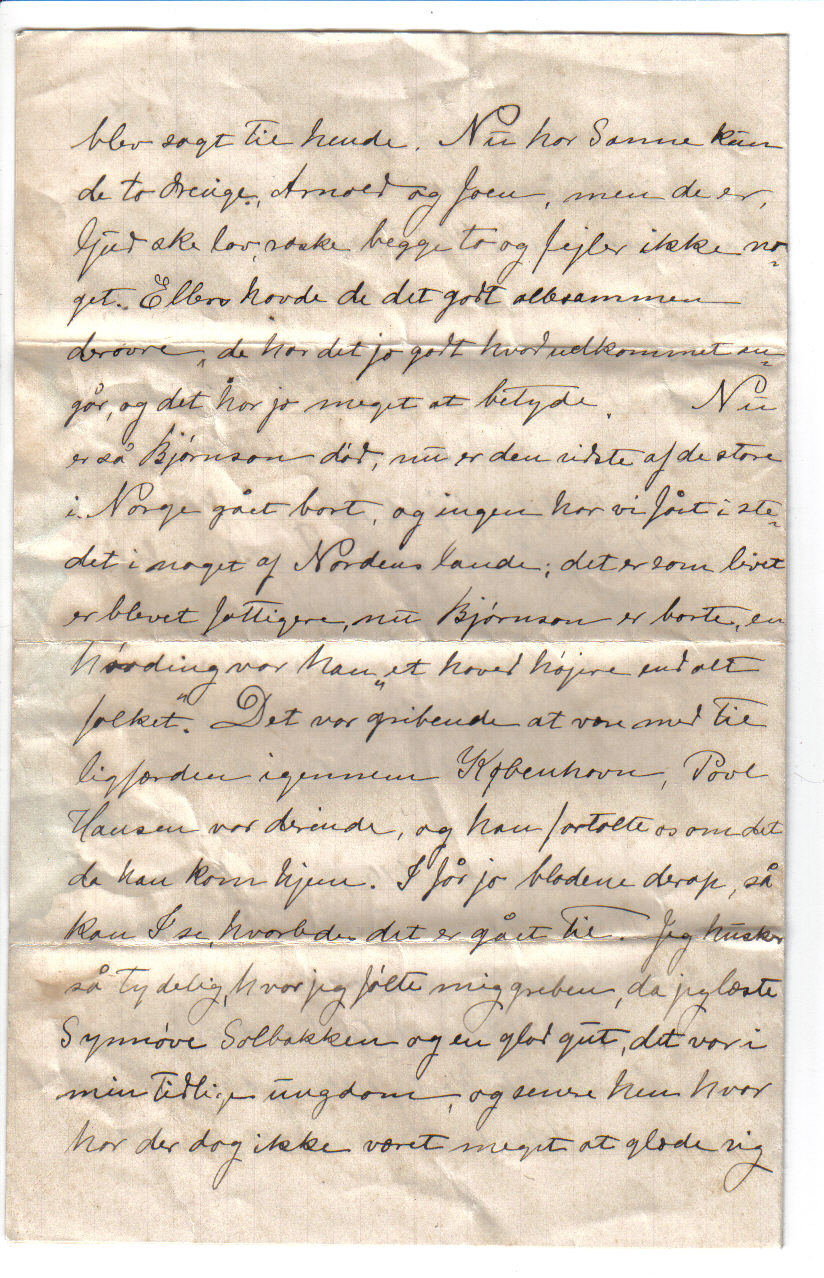 blev sagt til hende. Nu har Sanne kun
de to drenge, Arnold og Joen, men de er,
Gud ske lov, raske begge to og fejler ikke no=
get. Ellers havde de det godt allesammen
derovre, de har det jo godt hvad udkommet an=
går, og det har jo meget at betyde. Nu
er så Bjørnson død, nu er den sidste af de store
i Norge gået bort, og ingen har vi fået i ste=
det i noget af Nordens lande; det er som livet
er blevet fattigere, nu Bjørnson er borte, en
høvding var han „et hoved højere end alt
folket“. Det var gribende at være med til
ligfærden igennem København, Povl
Hansen var derinde, og han fortalte os om det
da han kom hjem. I får jo bladene derop, så
kan I se, hvorledes det er gået til. Jeg husker
så tydelig, hvor jeg følte mig greben, da jeg læste
Synnøve Solbakken og en glad gut, det var i
min tidlige ungdom, og senere hen hvor
har der dog ikke været meget at glæde sig